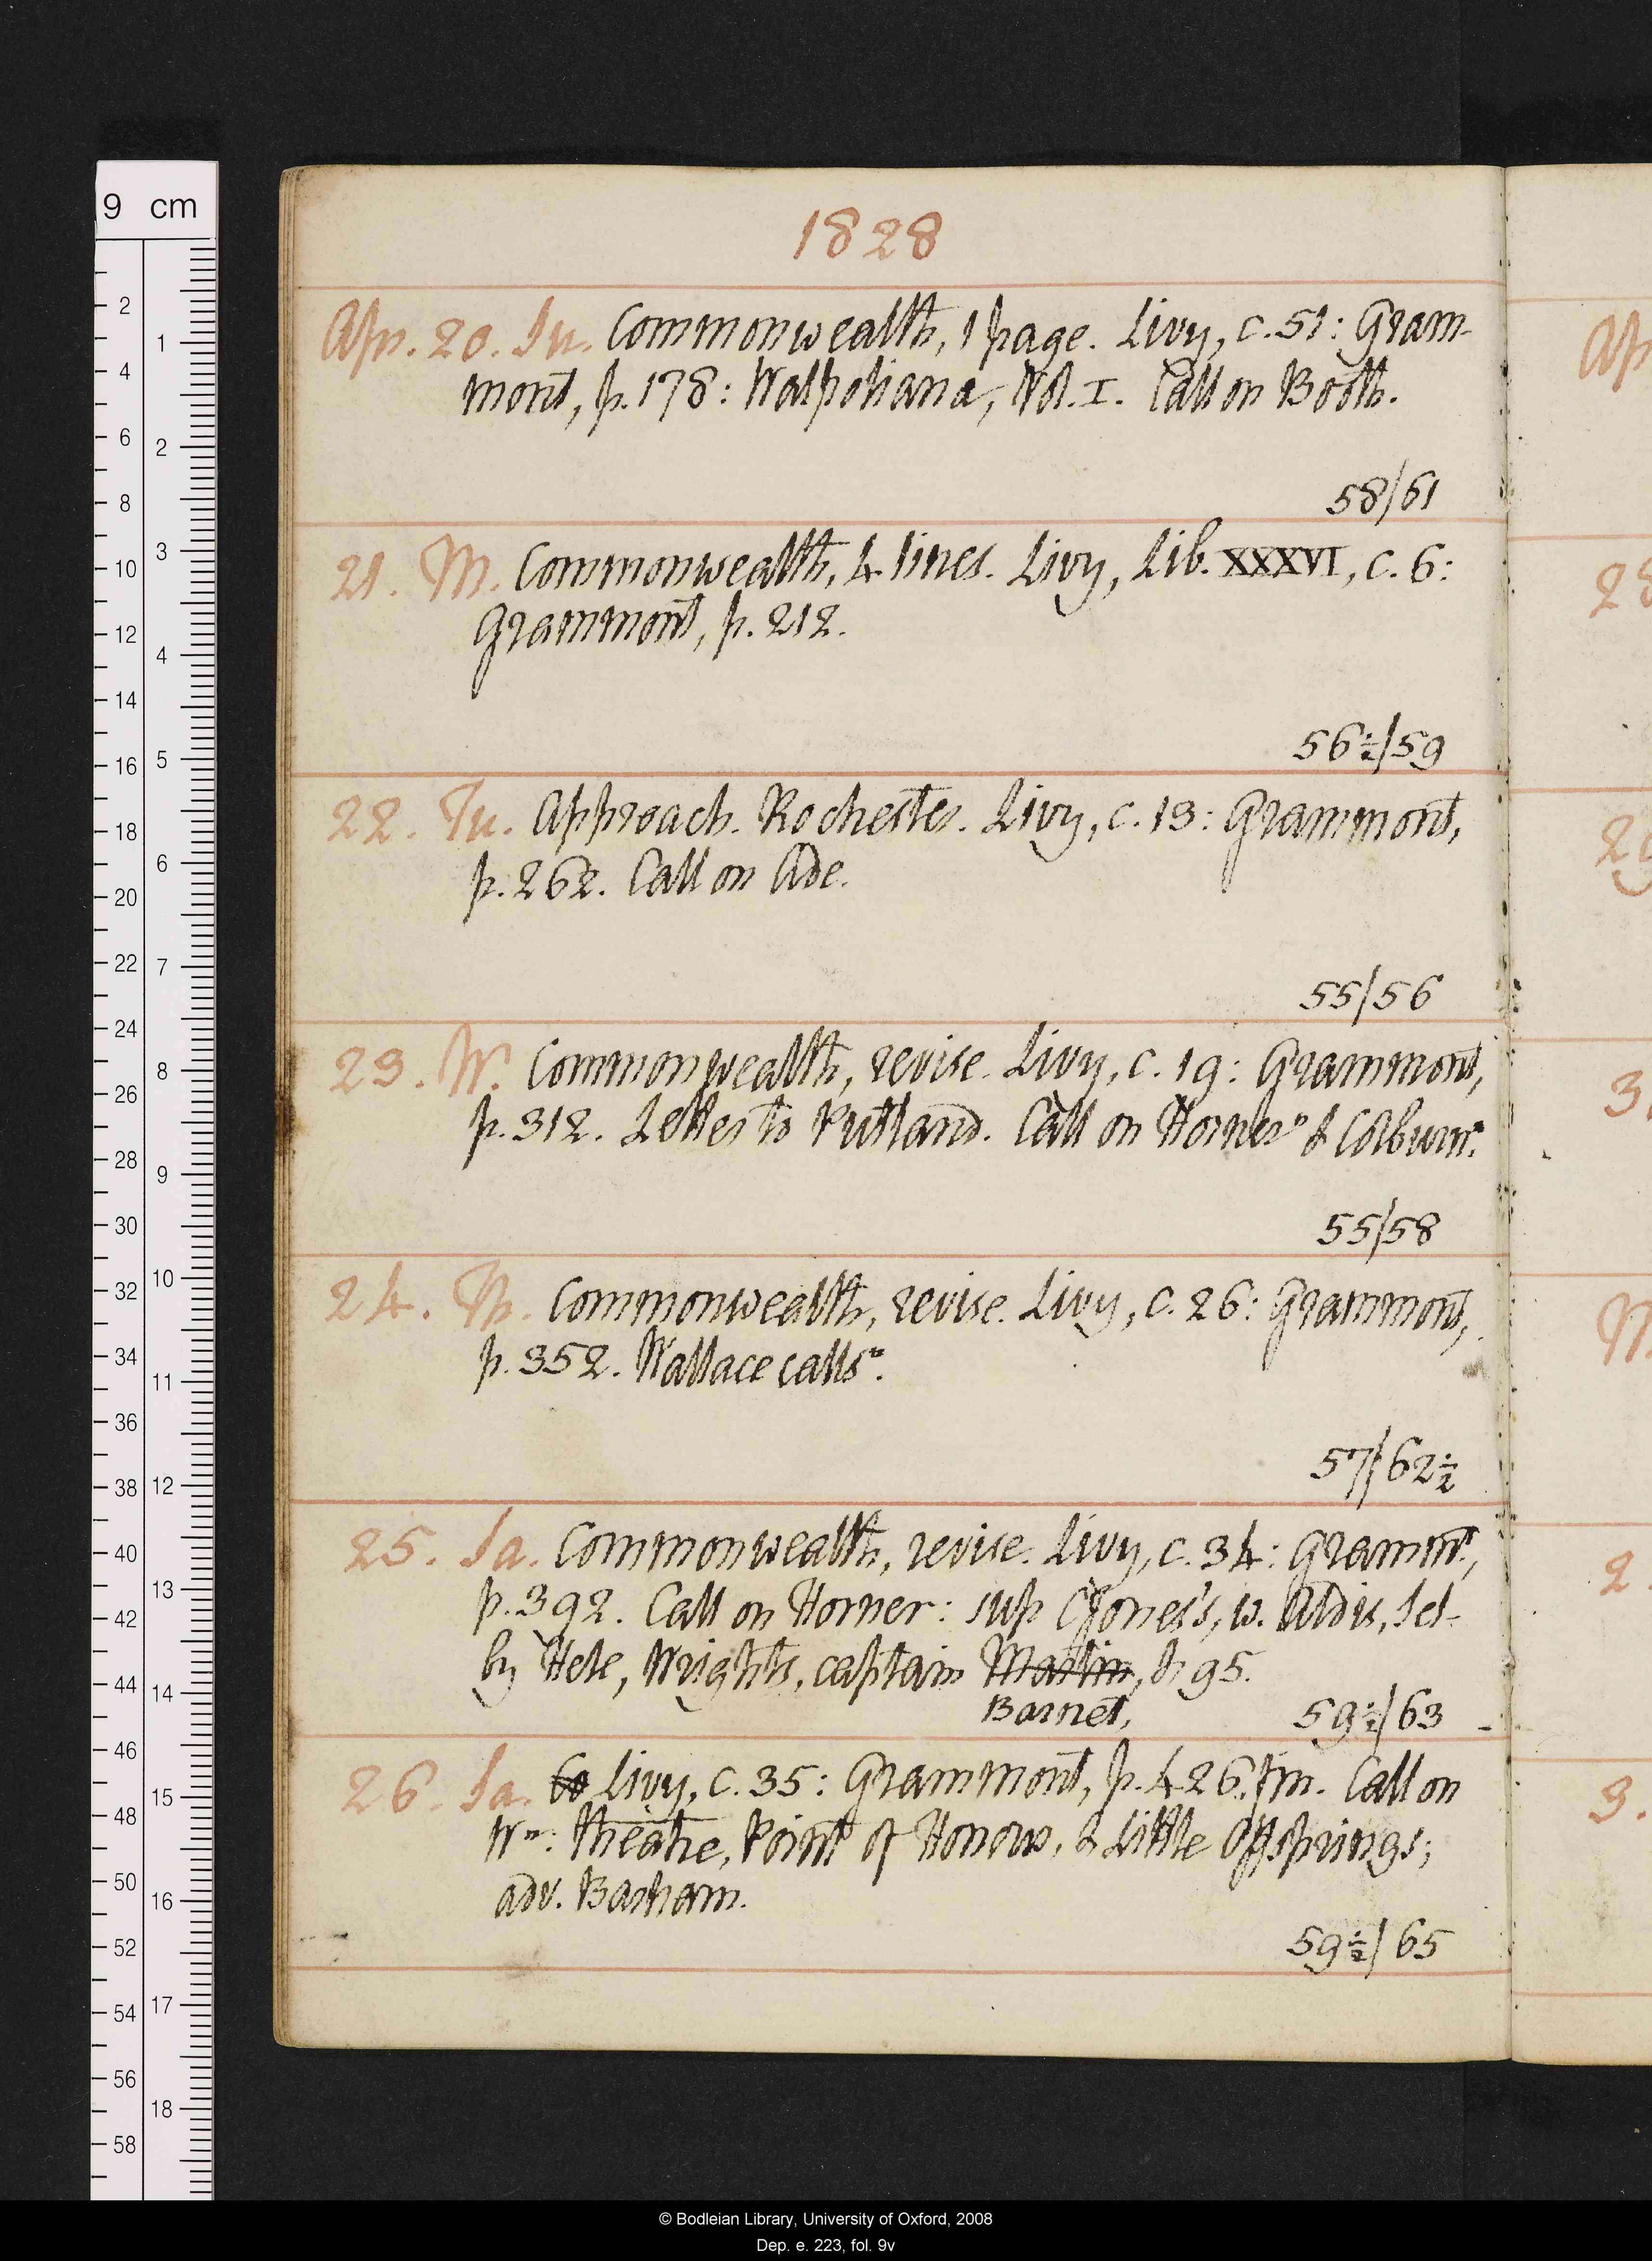 1828
Apr. 20. Su. Commonwealth, 1 page. Livy, c. 51: Gram-
mont, p. 178: Walpoliana, Vol. I. Call on Booth.
58/61
21. M. Commonwealth, 4 lines. Livy, Lib. XXXVI, c. 6:
Grammont, p. 212.
56½/59
22. Tu. Approach. Rochester. Livy, c. 13: Grammont,
p. 262. Call on Ade.
55/56
23. W. Commonwealth, revise. Livy, c. 19: Grammont,
p. 312. Letter to Rutland. Call on Horner* & Colburn*.
55/58
24. Th. Commonwealth, revise. Livy, c. 26: Grammont,
p. 352. Wallace calls*.
57/62½
25. Sa. Commonwealth, revise. Livy, c. 34: Grammt.,
p. 392. Call on Horner: sup CJones's, w. Aldis, Sel-
by Hele, Wrights, captain Martin, & 95.
Barnet,
59½/63
26. Sa. Co Livy, c. 35: Grammont, p. 426, fin. Call on
Wn: theatre, Point of Honour, & Little Offsprings;
adv. Basham.
59½/65
Ap
28
29
3
M
2.
3.
9 cm
2
4
6
8
10
12
14
16
18
20
22
24
26
28
30
32
34
36
38
40
42
44
46
48
50
52
54
56
58
1
2
3
4
5
6
7
8
9
10
11
12
13
14
15
16
17
18
© Bodleian Library, University of Oxford, 2008
Dep. e. 223, fol. 9v